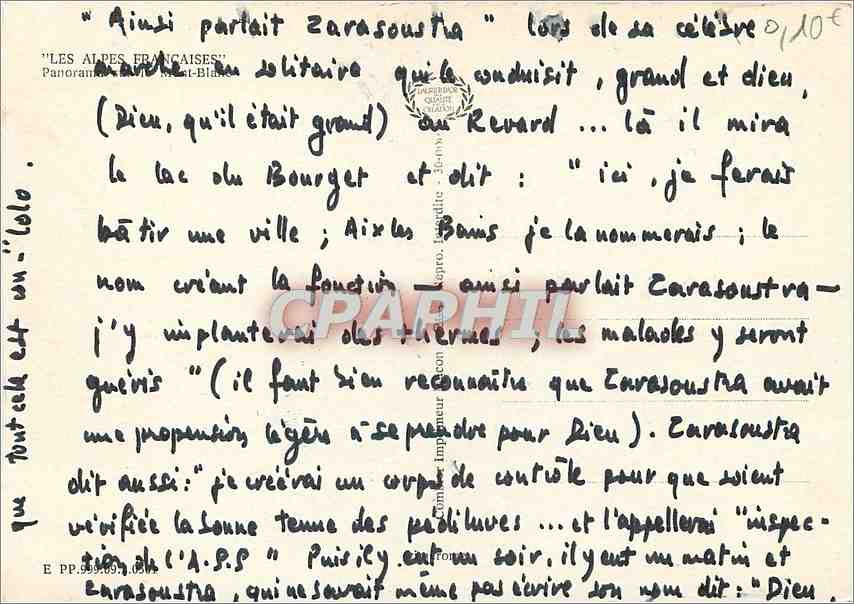 "Ainsi parlait Zarasoustra" lors de sa célèbre
0,10€
"LES ALPES FRANÇAISES"
Panorama sur le Mont-Blanc
marche en solitaire qui le conduisit, grand et dieu,
LAURIER D'OR
QUALITÉ
(Dieu, qu'il était grand) au Revard ... là il mira
le lac du Bourget et dit : "ici, je ferais
bâtir une ville ; Aix les Bains je la nommerais ; le
nom créant la fonction — ainsi parlait Zarasoustra —
CPAPHIL
j'y implanterai des thermes ; les malades y seront
guéris" (il faut bien reconnaître que Zarasoustra avait
une propension légère à se prendre pour Dieu). Zarasoustra
dit aussi : "je créérai un corps de contrôle pour que soient
vérifiée la bonne tenue des pédiluves ... et l'appellerai "inspec-
tion de l'A.S.S" Puis il y eut un soir, il y eut un matin et
E PP.999.09
Zarasoustra, qui ne savait même pas écrire son nom dit : "Dieu,
que tout cela est con-"lolo.
Imprimeur
Repro. Interdite